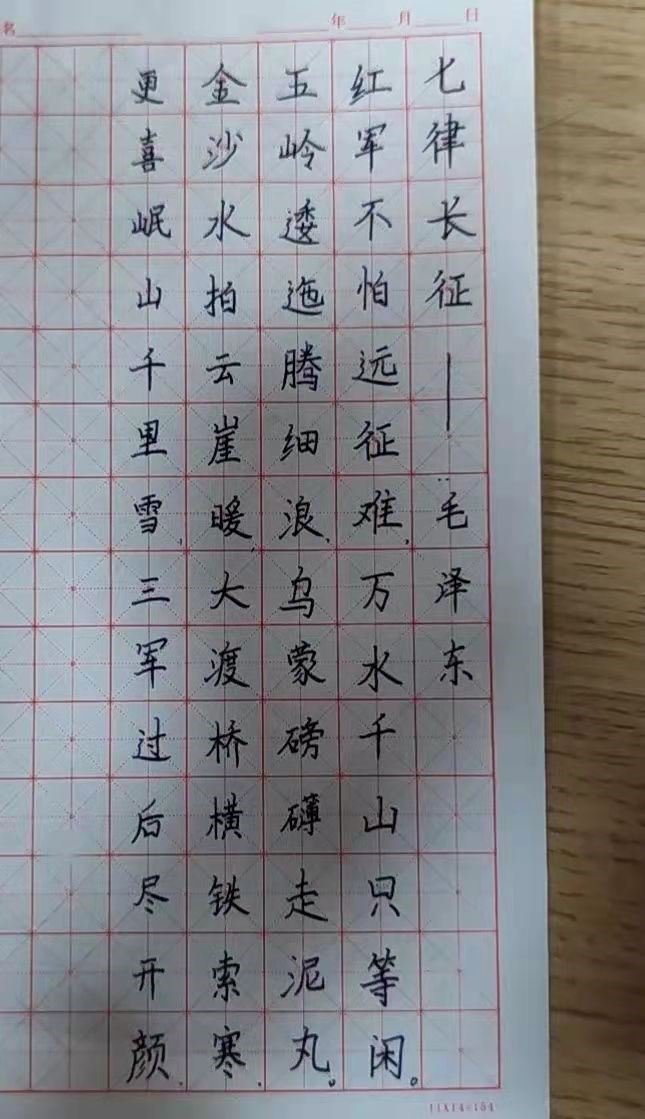 名 年 月 日
七律长征——毛泽东
红军不怕远征难,万水千山只等闲。
五岭逶迤腾细浪,乌蒙磅礴走泥丸。
金沙水拍云崖暖,大渡桥横铁索寒.
更喜岷山千里雪,三军过后尽开颜.